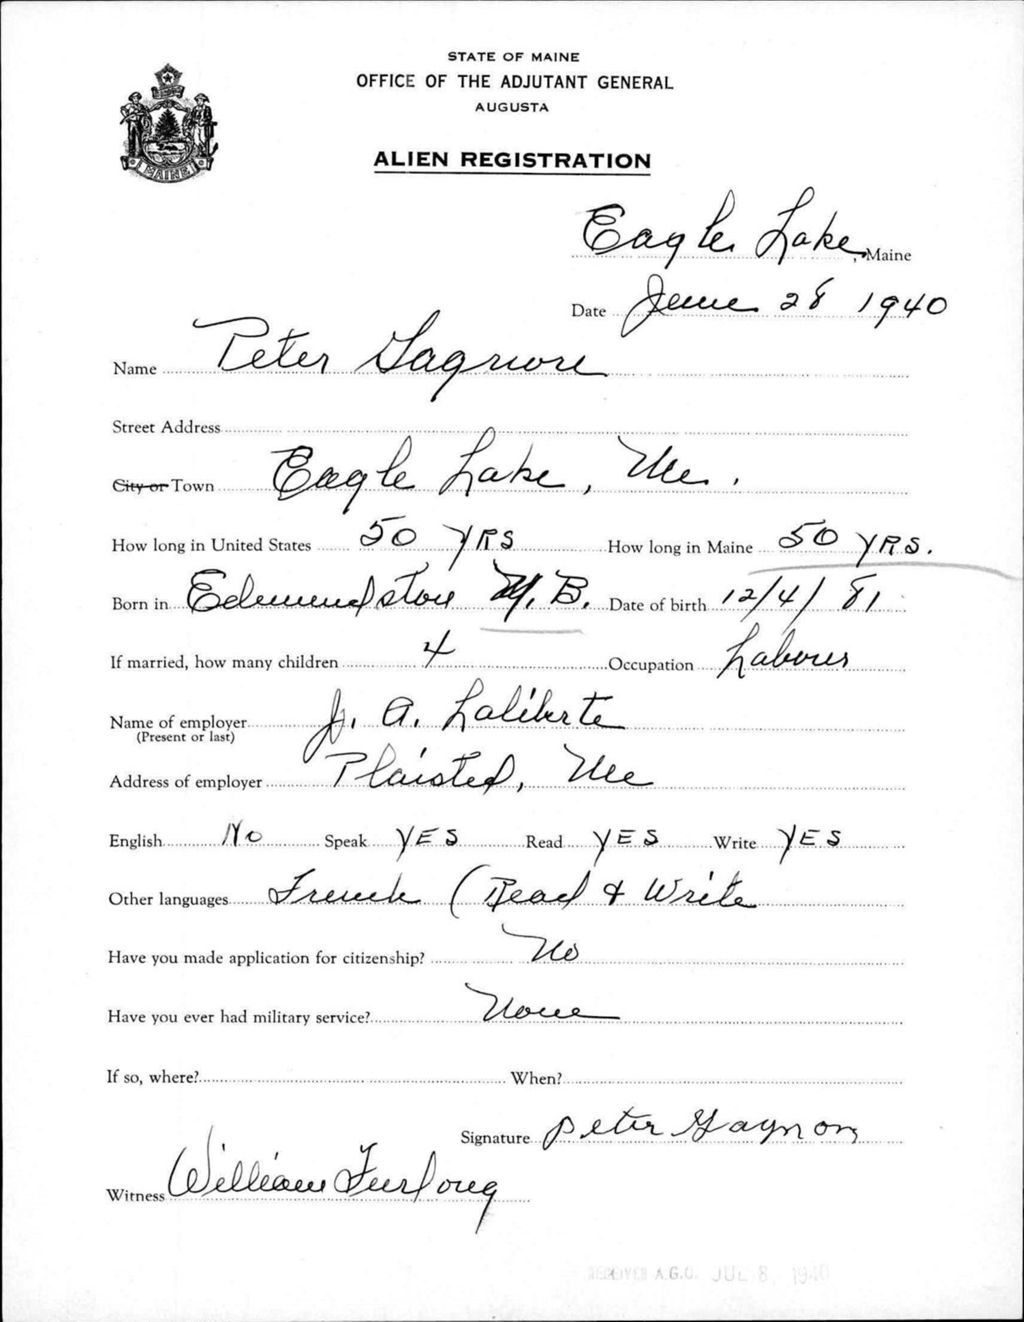 STATE OF MAINE
OFFICE OF THE ADJUTANT GENERAL
AUGUSTA
MAINE
ALIEN REGISTRATION
Eagle Lake, Maine
Date June 28 1940
Name Peter Gagnon
Street Address
City or Town Eagle Lake, Me.
How long in United States 50 YRS How long in Maine 50 YRS.
Born in Edmundston N.B. Date of birth 12/4/81
If married, how many children 4 Occupation Labourer
Name of employer J. A. Laliberte
(Present or last)
Address of employer Plaisted, Me
English No Speak YES Read YES Write YES
Other languages French (Read & Write
Have you made application for citizenship? No
Have you ever had military service? None
If so, where? When?
Signature Peter Gagnon
Witness William Furlong
RECEIVED A.G.O. JUL 8, 1940